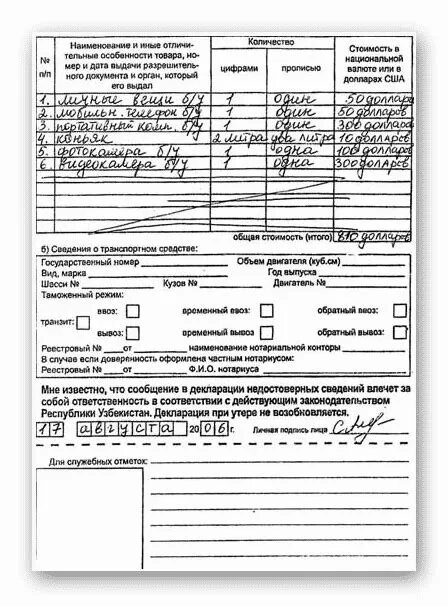 № п/п
Наименование и иные отличи-
тельные особенности товара, но-
мер и дата выдачи разрешитель-
ного документа и орган, который
его выдал
Количество
цифрами
прописью
Стоимость в
национальной
валюте или в
долларах США
1. личные вещи б/у 1 один 50 долларов
2. мобильн. телефон б/у 1 один 50 долларов
3. портативный комп. б/у 1 один 300 долларов
4. коньяк 2 литра два литра 10 долларов
5. фотокамера б/у 1 одна 100 долларов
6. видеокамера б/у 1 одна 300 долларов
общая стоимость (итого) 810 долларов
б) Сведения о транспортном средстве:
Государственный номер Объем двигателя (куб.см)
Вид, марка Год выпуска
Шасси № Кузов № Двигатель №
Таможенный режим:
ввоз: временный ввоз: обратный ввоз:
транзит:
вывоз: временный вывоз обратный вывоз:
Реестровый № от наименование нотариальной конторы
В случае если доверенность оформлена частным нотариусом:
Реестровый № от Ф.И.О. нотариуса
Мне известно, что сообщение в декларации недостоверных сведений влечет за
собой ответственность в соответствии с действующим законодательством
Республики Узбекистан. Декларация при утере не возобновляется.
17 августа 2006 г. Личная подпись лица
Для служебных отметок: